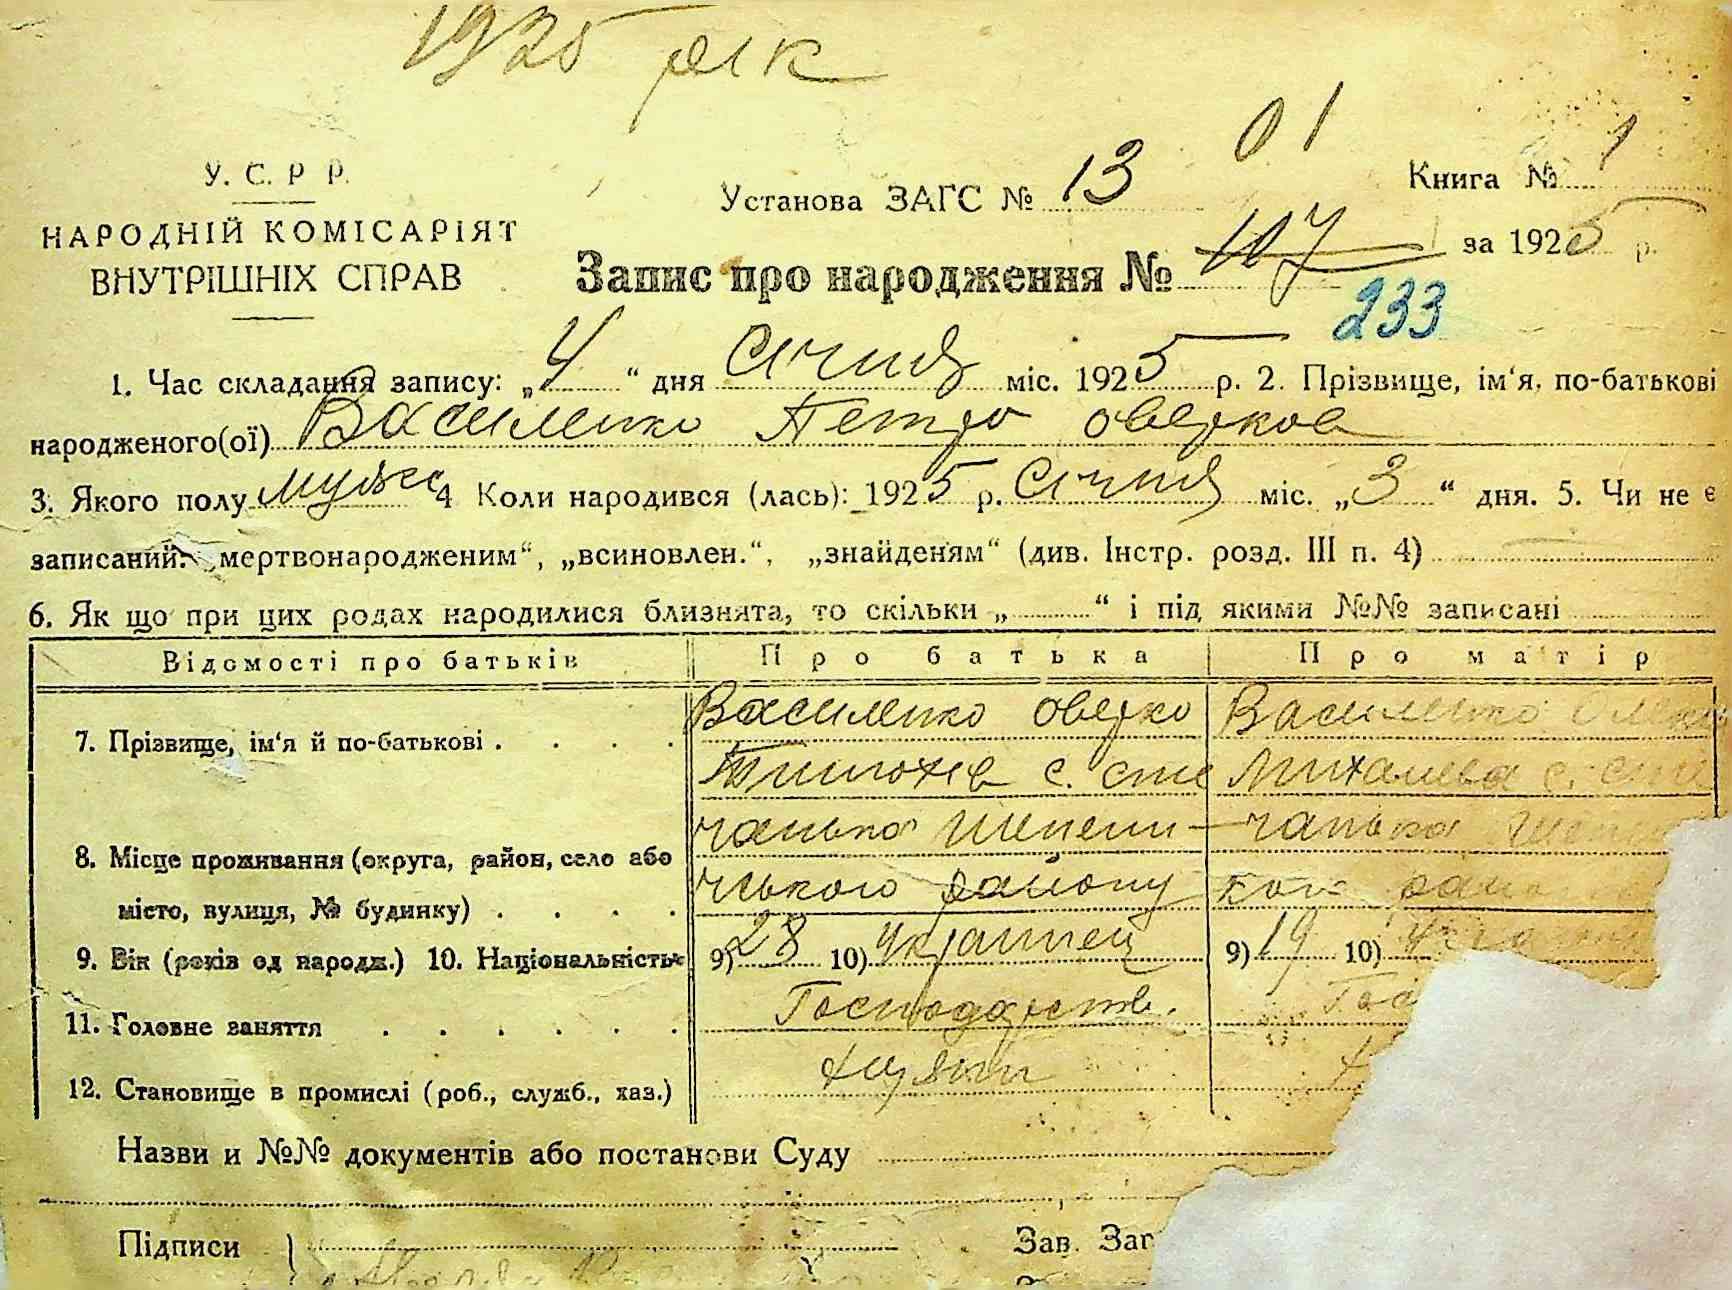 1925 рік
У. С. Р Р.
НАРОДНІЙ КОМІСАРІЯТ
ВНУТРІШНІХ СПРАВ
01
Установа ЗАГС № 13
Книга № 1
Запис про народження № 107 за 1925 р.
233
1. Час складання запису: „4“ дня Січня міс. 1925 р. 2. Прізвище, ім‘я, по-батькові
народженого(ої) Василенко Петро Оверков
3. Якого полу мужс 4 Коли народився (лась): 1925 р. Січня міс. „3“ дня. 5. Чи не є
записаний: „мертвонародженим“, „всиновлен.“, „знайденям“ (див. Інстр. розд. III п. 4)
6. Як що при цих родах народилися близнята, то скільки „ “ і під якими №№ записані
Відомості про батьків Про батька Про матір
7. Прізвище, ім‘я й по-батькові . . . . Василенко Оверко Василенко
Тимохів с. Сте Михалева с. Сте
чанька чанька
8. Місце проживання (округа, район, село або
місто, вулиця, № будинку) . . . . чського району
9. Вік (років од народж.) 10. Національність 9) 28 10) Українец 9) 19 10)
11. Головне заняття . . . . . . Господарств.
12. Становище в промислі (роб., служб., хаз.) хазяїн
Назви и №№ документів або постанови Суду
Підписи
Зав. Заг